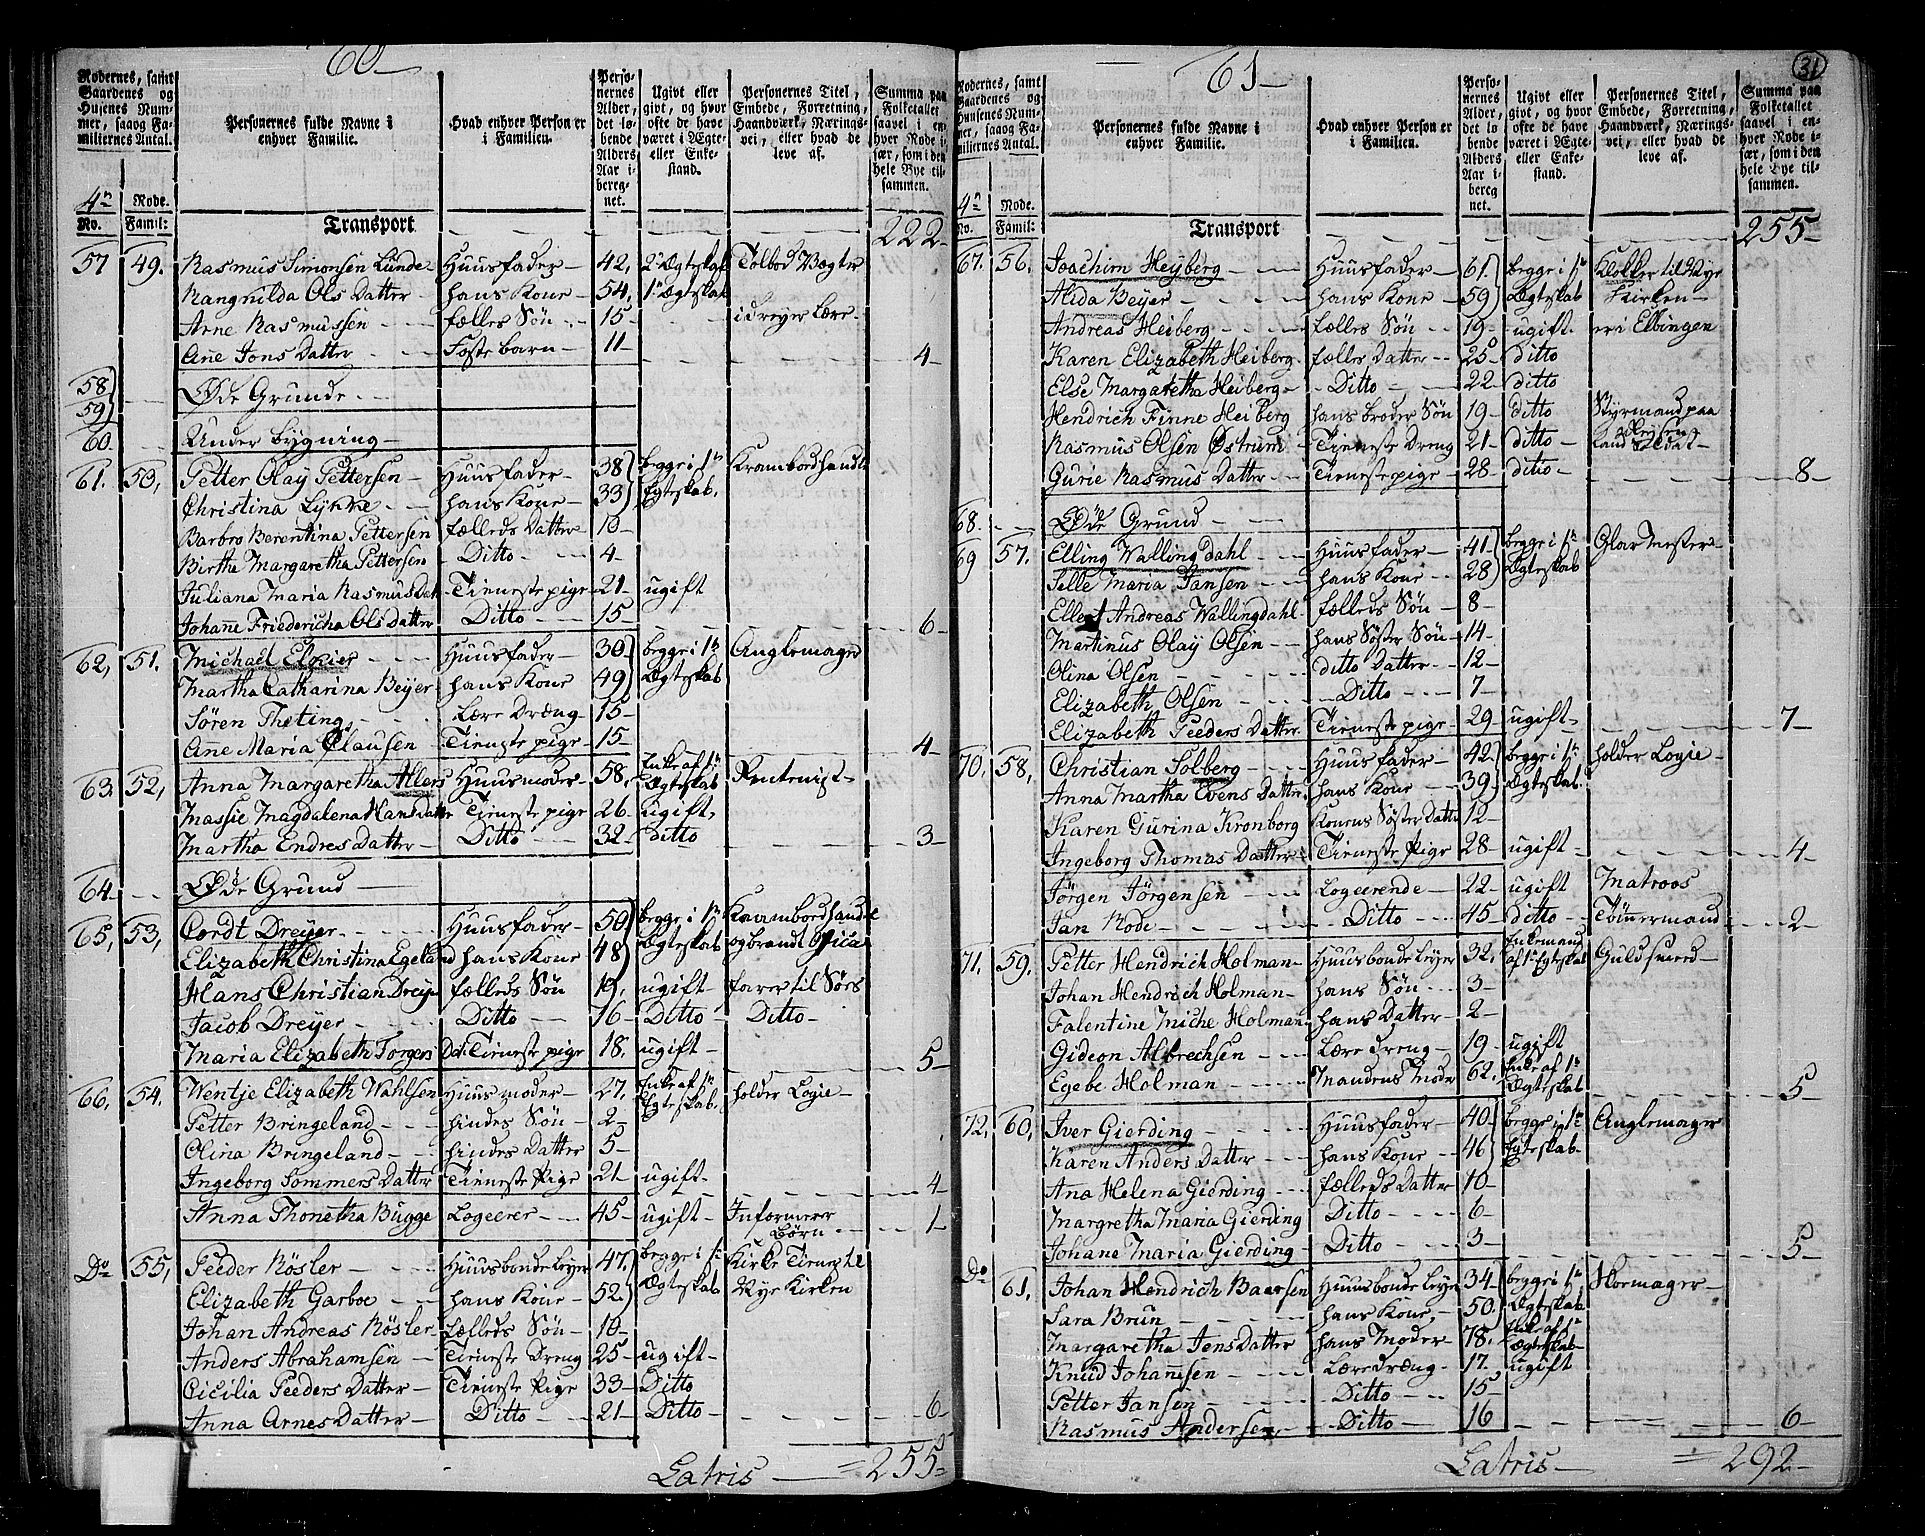 60
Rodernes, samt Gaardenes og Husenes Nummer, saaog Familiernes Antal.
Personernes fulde Navne i enhver Familie.
Hvad enhver Person er i Familien.
Personernes Alder, det løbende Alders Aar iberegnet.
Ugivt eller givt, og hvor ofte de have været i Ægte- eller Enkestand.
Personernes Titel, Embede, Forretning, Haandværk, Næringsvei, eller hvad de leve af.
Summa paa Folketallet saavel i enhver Rode især, som i den hele Bye tilsammen.
4de Rode.
No. Famil:
Transport 222
57 49. Rasmus Simonsen Lunde Huusfader 42, 2t Ægteskab Tolbod Vægter
Rangnilda Ols Datter hans Kone 54, 1t Ægteskab
Arne Rasmussen fælles Søn 15 i dreyer Lære
Ane Jons Datter Foster barn 11 4
58
59 Øde Grunde
60 Under bygning
61. 50, Petter Olay Pettersen Huusfader 38 begge i 1te Ægteskab. Krambordhandl
Christina Lykke hans Kone 33
Barbro Berentina Pettersen fælleds Datter 10
Birthe Margaretha Pettersen Ditto 4
Juliana Maria Rasmus Dat Tieneste pige 21 ugift
Johane Friedericha Ols Datter Ditto 15 6
62, 51. Michael Elzier Huusfader 30 begge i 1te Ægteskab Anglemager
Martha Catharina Beyer hans Kone 49
Søren Theting Lære Dræng 15
Ane Maria Clausen Tieneste pige 15 4
63 52, Anna Margaretha Ahlers Huusmoder 58, Enke af 1te Ægteskab Rentenist
Massie Magdalena Hans Datter Tieneste pige 26 ugift,
Martha Endres Datter Ditto 32 Ditto 3
64 Øde Grund
65, 53, Cordt Dreyer Huusfader 50 begge i 1te Ægteskab Krambordhandel og brandt
Elizabeth Christina Egeland hans Kone 48
Hans Christian Dreye fælleds Søn 19, ugift farer til Søes
Jacob Dreyer Ditto 16 Ditto Ditto
Maria Elizabeth Torgers Dat: Tieneste pige 18, ugift 5
66, 54. Wentje Elizabeth Wahlsen Huus moder 27, Enke af 1te Egteskab. holder Logie
Petter Bringeland hindes Søn 2
Olina Bringeland hindes Datter 5
Ingeborg Sommers Datter Tieneste Pige 21 ugift 4
Anna Thonetha Bugge Logeerer 45 ugift Informerer Børn 1
Do 55, Peeder Rösler Huusbonde Leyer 47, begge i 1te Ægteskab Kirke Tieneste Nye Kirken
Elizabeth Garboe hans Kone 52
Johan Andreas Rösler fælleds Søn 10
Anders Abrahamsen Tieneste Dreng 25 ugift
Cicilia Peeders Datter Tieneste Pige 33 Ditto
Anna Arnes Datter Ditto 21 Ditto 6
Latris 255
61
31
Rodernes, samt Gaardenes og Husenes Nummer, saaog Familiernes Antal.
Personernes fulde Navne i enhver Familie.
Hvad enhver Person er i Familien.
Personernes Alder, det løbende Alders Aar iberegnet.
Ugivt eller givt, og hvor ofte de have været i Ægte- eller Enkestand.
Personernes Titel, Embede, Forretning, Haandværk, Næringsvei, eller hvad de leve af.
Summa paa Folketallet saavel i enhver Rode især, som i den hele Bye tilsammen.
4de Rode.
No. Famil:
Transport 255
67. 56. Joachim Heyberg Huusfader 61. begge i 1te Ægteskab Klokker til Nye Kirken
Alida Beyer hans Kone 59
Andreas Heiberg fælles Søn 19 ugift er i Elbingen
Karen Elizabeth Heiberg fælles Datter 25 ditto
Else Margaretha Heiberg Ditto 22 ditto
Hendrich Finne Heiberg hans broder Søn 19 ditto Styrmand paa Reysen
Rasmus Olsen Østrum Tieneste Dreng 21 ditto Land Soldat
Gurie Rasmus Datter Tieneste pige 28 ditto 8
68. Øde Grund
69 57. Elling Wallingdahl Huusfader 41 begge i 1te Ægteskab Glar Mester
Selle Maria Jansen hans Kone 28
Ellert Andreas Wallingdahl fælleds Søn 8
Martinus Olay Olsen hans Søster Søn 14
Olina Olsen ditto Datter 12
Elizabeth Olsen Ditto 7
Elizabeth Peeders Datter Tieneste pige 29 ugift 7
70, 58, Christian Solberg Huusfader 42 begge i 1te Ægteskab. holder Logie
Anna Martha Evens Datter hans Kone 39
Karen Gurina Kronborg Konens Søster Datter 12
Ingeborg Thomas Datter Tieneste Pige 28 ugift 4
Jörgen Jörgensen Logeerende 22 ugift Matroos
Jan Rode Ditto 45 ditto Tömmermand 2
71, 59. Petter Hendrich Holman Huusbonde Leyer 32, Enkemand af 1te Egteskab Guldsmed
Johan Hendrich Holman hans Søn 3
Falentine Miche Holman hans Datter 2
Gideon Albrechsen Lære dreng 19 ugift
Egebe Holman Mandens Moder 62. Enke af 1te Ægteskab 5
72, 60, Iver Gierding Huusfader 40 begge i 1te Egteskab Anglemager
Karen Anders Datter hans Kone 46
Ana Helena Gierding fælleds Datter 10
Margretha Maria Gierding Ditto 6
Johane Maria Gierding Ditto 3 5
Do 61, Johan Hendrich Baarsen Huusbonde Leyer 34 begge i 1te Ægteskab Hormager
Sara Brun hans Kone, 50
Margaretha Jens Datter hans Moder 78, Enke af 1te Ægteskab
Knud Johannsen Læredræng 17 ugift
Petter Jansen Ditto 15
Rasmus Andersen Ditto 16 6
Latris 292